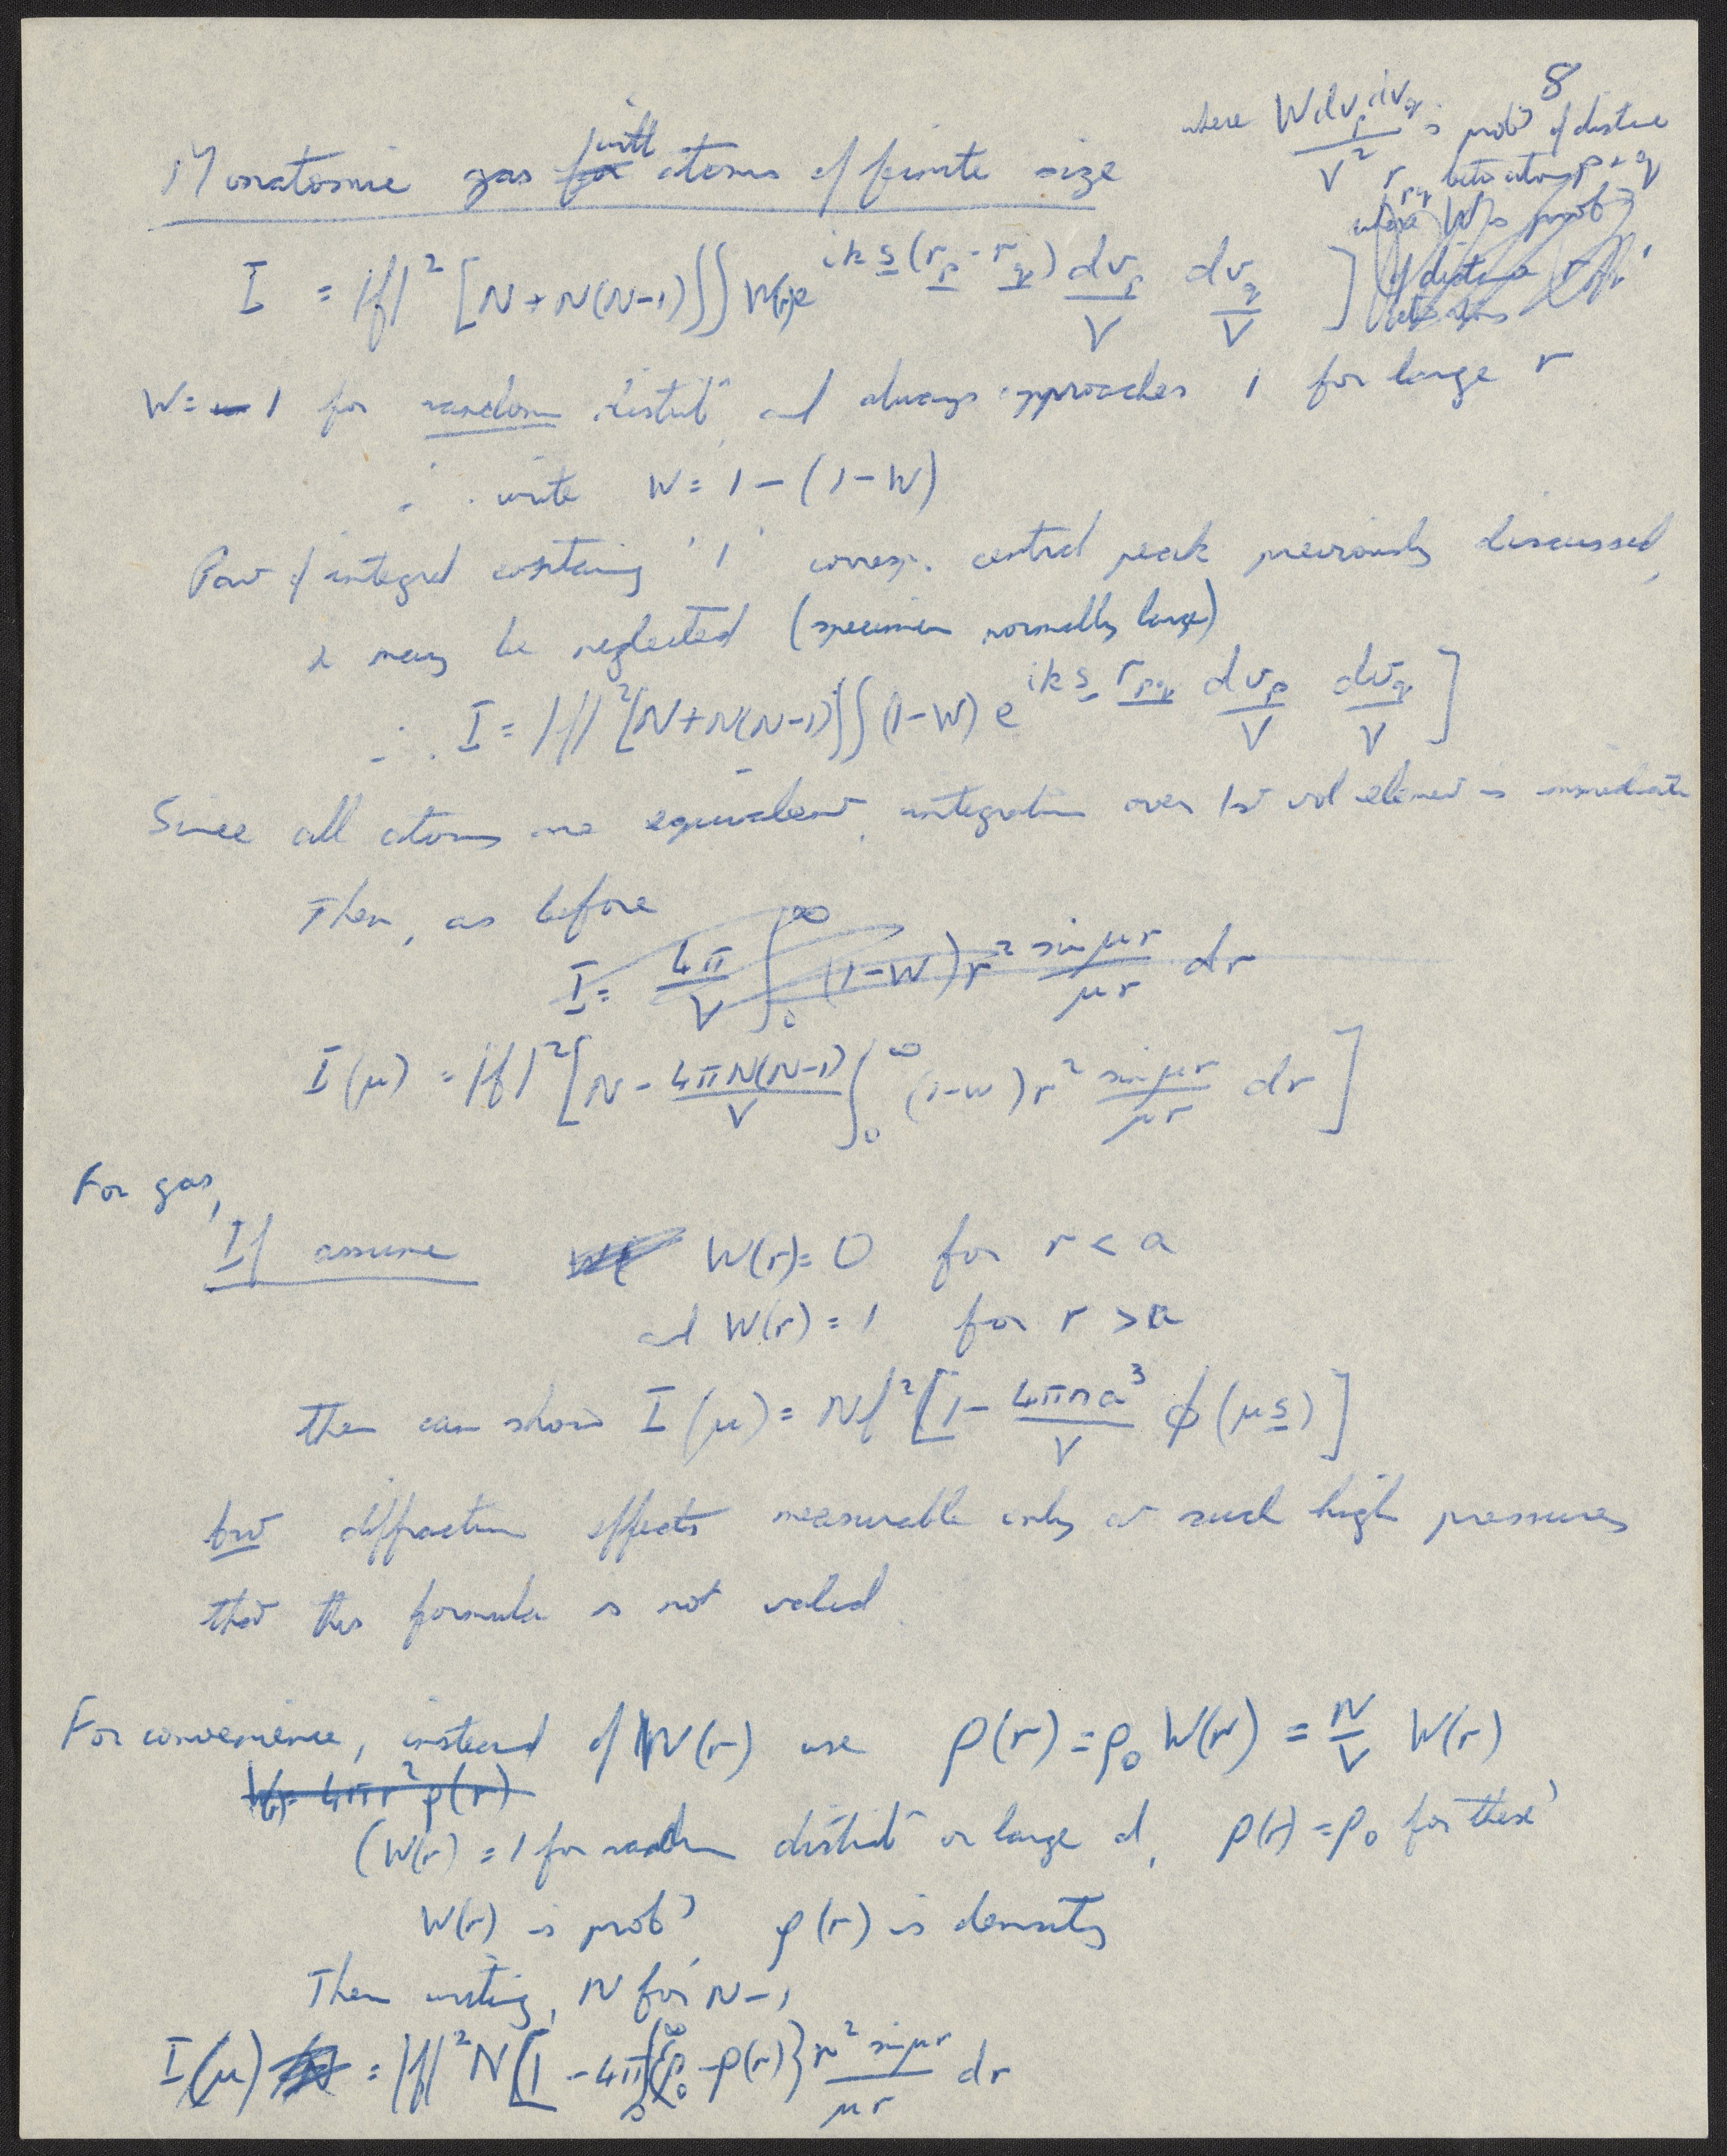 8
where W dv_p dv_q / V² is prob^y of distance
r_pq betw atoms p & q
where W is prob^y
of distance r
Monatomic gas for with atoms of finite size
I = |f|² [N + N(N-1) ∫∫ W(r) e^{ik s (r_p - r_q)} dv_p/V dv_q/V ]
W = 1 for random distrib^n and always approaches 1 for large r
∴ write W = 1 - (1-W)
Part of integral containing '1' corresp. central peak previously discussed,
& may be neglected (specimen normally large)
∴ I = |f|² [N + N(N-1) ∫∫ (1-W) e^{ik s r_pq} dv_p/V dv_q/V ]
Since all atoms are equivalent, integration over 1st vol element is immediate
Then, as before
I = 4π/V ∫_0^∞ (1-W) r² sin μr / μr dr
I(μ) = |f|² [N - 4πN(N-1)/V ∫_0^∞ (1-W) r² sin μr / μr dr ]
For gas,
If assume W( W(r) = 0 for r < a
and W(r) = 1 for r > a
then can show I(μ) = Nf² [1 - 4πna³/V φ(μs) ]
but diffraction effects measurable only at such high pressures
that this formula is not valid.
For convenience, instead of W(r) use ρ(r) = ρ_0 W(r) = N/V W(r)
W(r) = 4πr² ρ(r)
(W(r) = 1 for random distrib^n or large d, ρ(r) = ρ_0 for these)
W(r) is prob^y, ρ(r) is density
Then writing, N for N-1
I(μ) = |f|² N [1 - 4π ∫_0^∞ {ρ_0 - ρ(r)} r² sin μr / μr dr